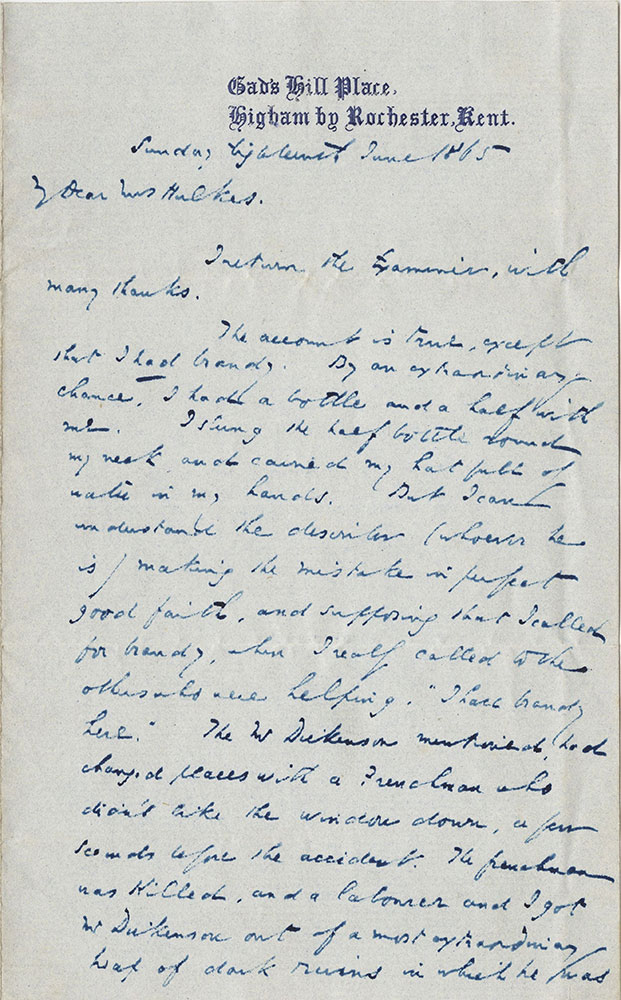 Gad's Hill Place,
Higham by Rochester, Kent.
Sunday Eighteenth June 1865
My Dear Mrs Hulkes.
I return the Examiner, with
many thanks.
The account is true, except
that I had brandy. By an extraordinary
chance, I had a bottle and a half with
me. I slung the half bottle round
my neck, and carried my hat full of
water in my hands. But I can
understand the describer (whoever he
is) making the mistake in perfect
good faith, and supposing that I called
for brandy, when I really called to the
others who were helping, "I have brandy
here." The Mr Dickenson mentioned, had
changed places with a Frenchman who
didn't like the window down, a few
seconds before the accident. The frenchman
was killed, and a labourer and I got
Mr Dickenson out of a most extraordinary
heap of dark ruins in which he was